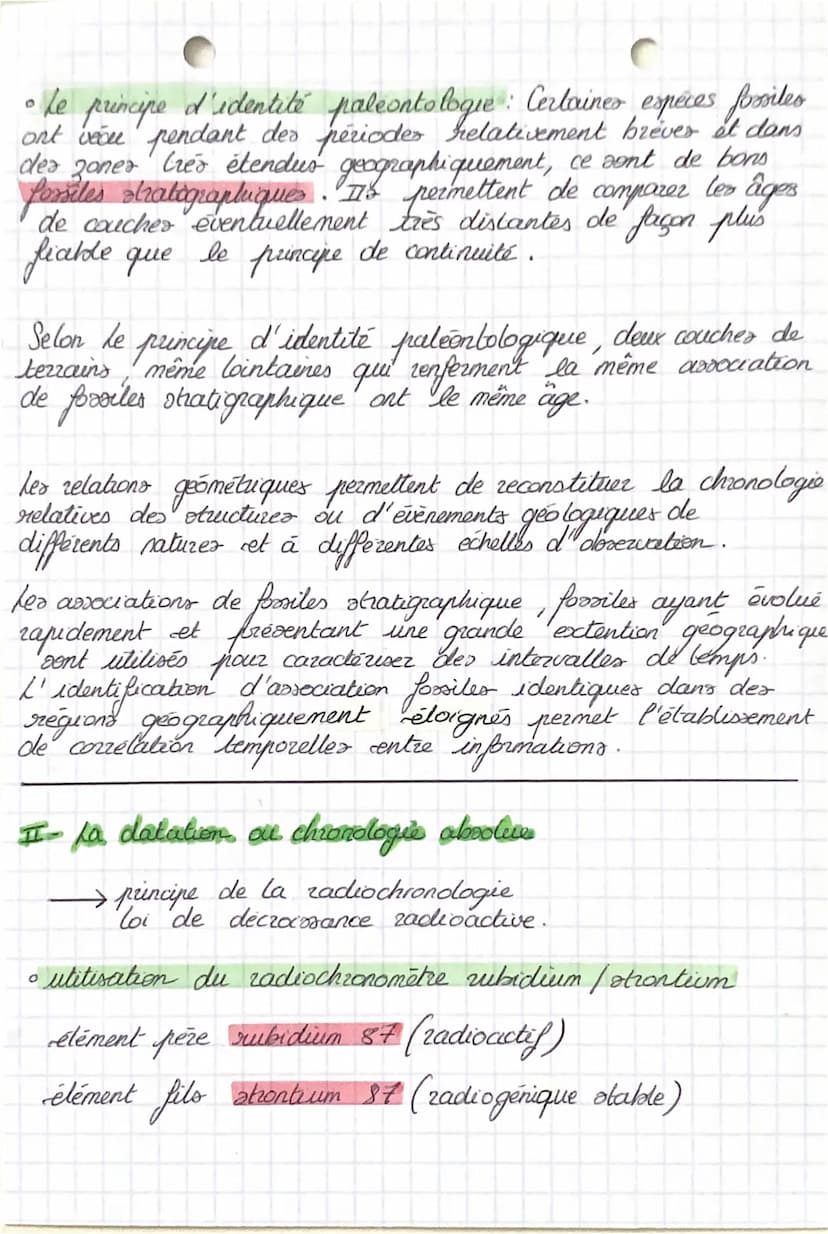 • Le principe d'identité paléontologie : Certaines espèces fossiles
ont vécu pendant des périodes relativement brèves et dans
des zones très étendus geographiquement, ce sont de bons
fossiles stratographiques. Ils permettent de comparer les âges
de couches éventuellement très distantes de façon plus
fiable que le principe de continuité.
Selon le principe d'identité paléontologique, deux couches de
terrains, même lointaines qui renferment la même association
de fossiles stratigraphique ont le même âge.
Les relations géométriques permettent de reconstituer la chronologie
relatives des structures ou d'évènements géologiques de
différents natures et à différentes échelles d'observation.
Les associations de fossiles stratigraphique, fossiles ayant évolué
rapidement et présentant une grande extention géographique
sont utilisés pour caractériser des intervalles de temps.
L'identification d'association fossiles identiques dans des
régions géographiquement éloignés permet l'établissement
de corrélation temporelles entre informations.
II- La datation ou chronologie absolue
→ principe de la radiochronologie
loi de décroissance radioactive.
• utitisation du radiochronomètre rubidium / strontium
élément père rubidium 87 (radioactif)
élément fils strontium 87 (radiogénique stable)